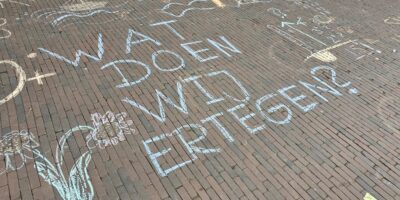 WAT
DOEN
WIJ
ERTEGEN?